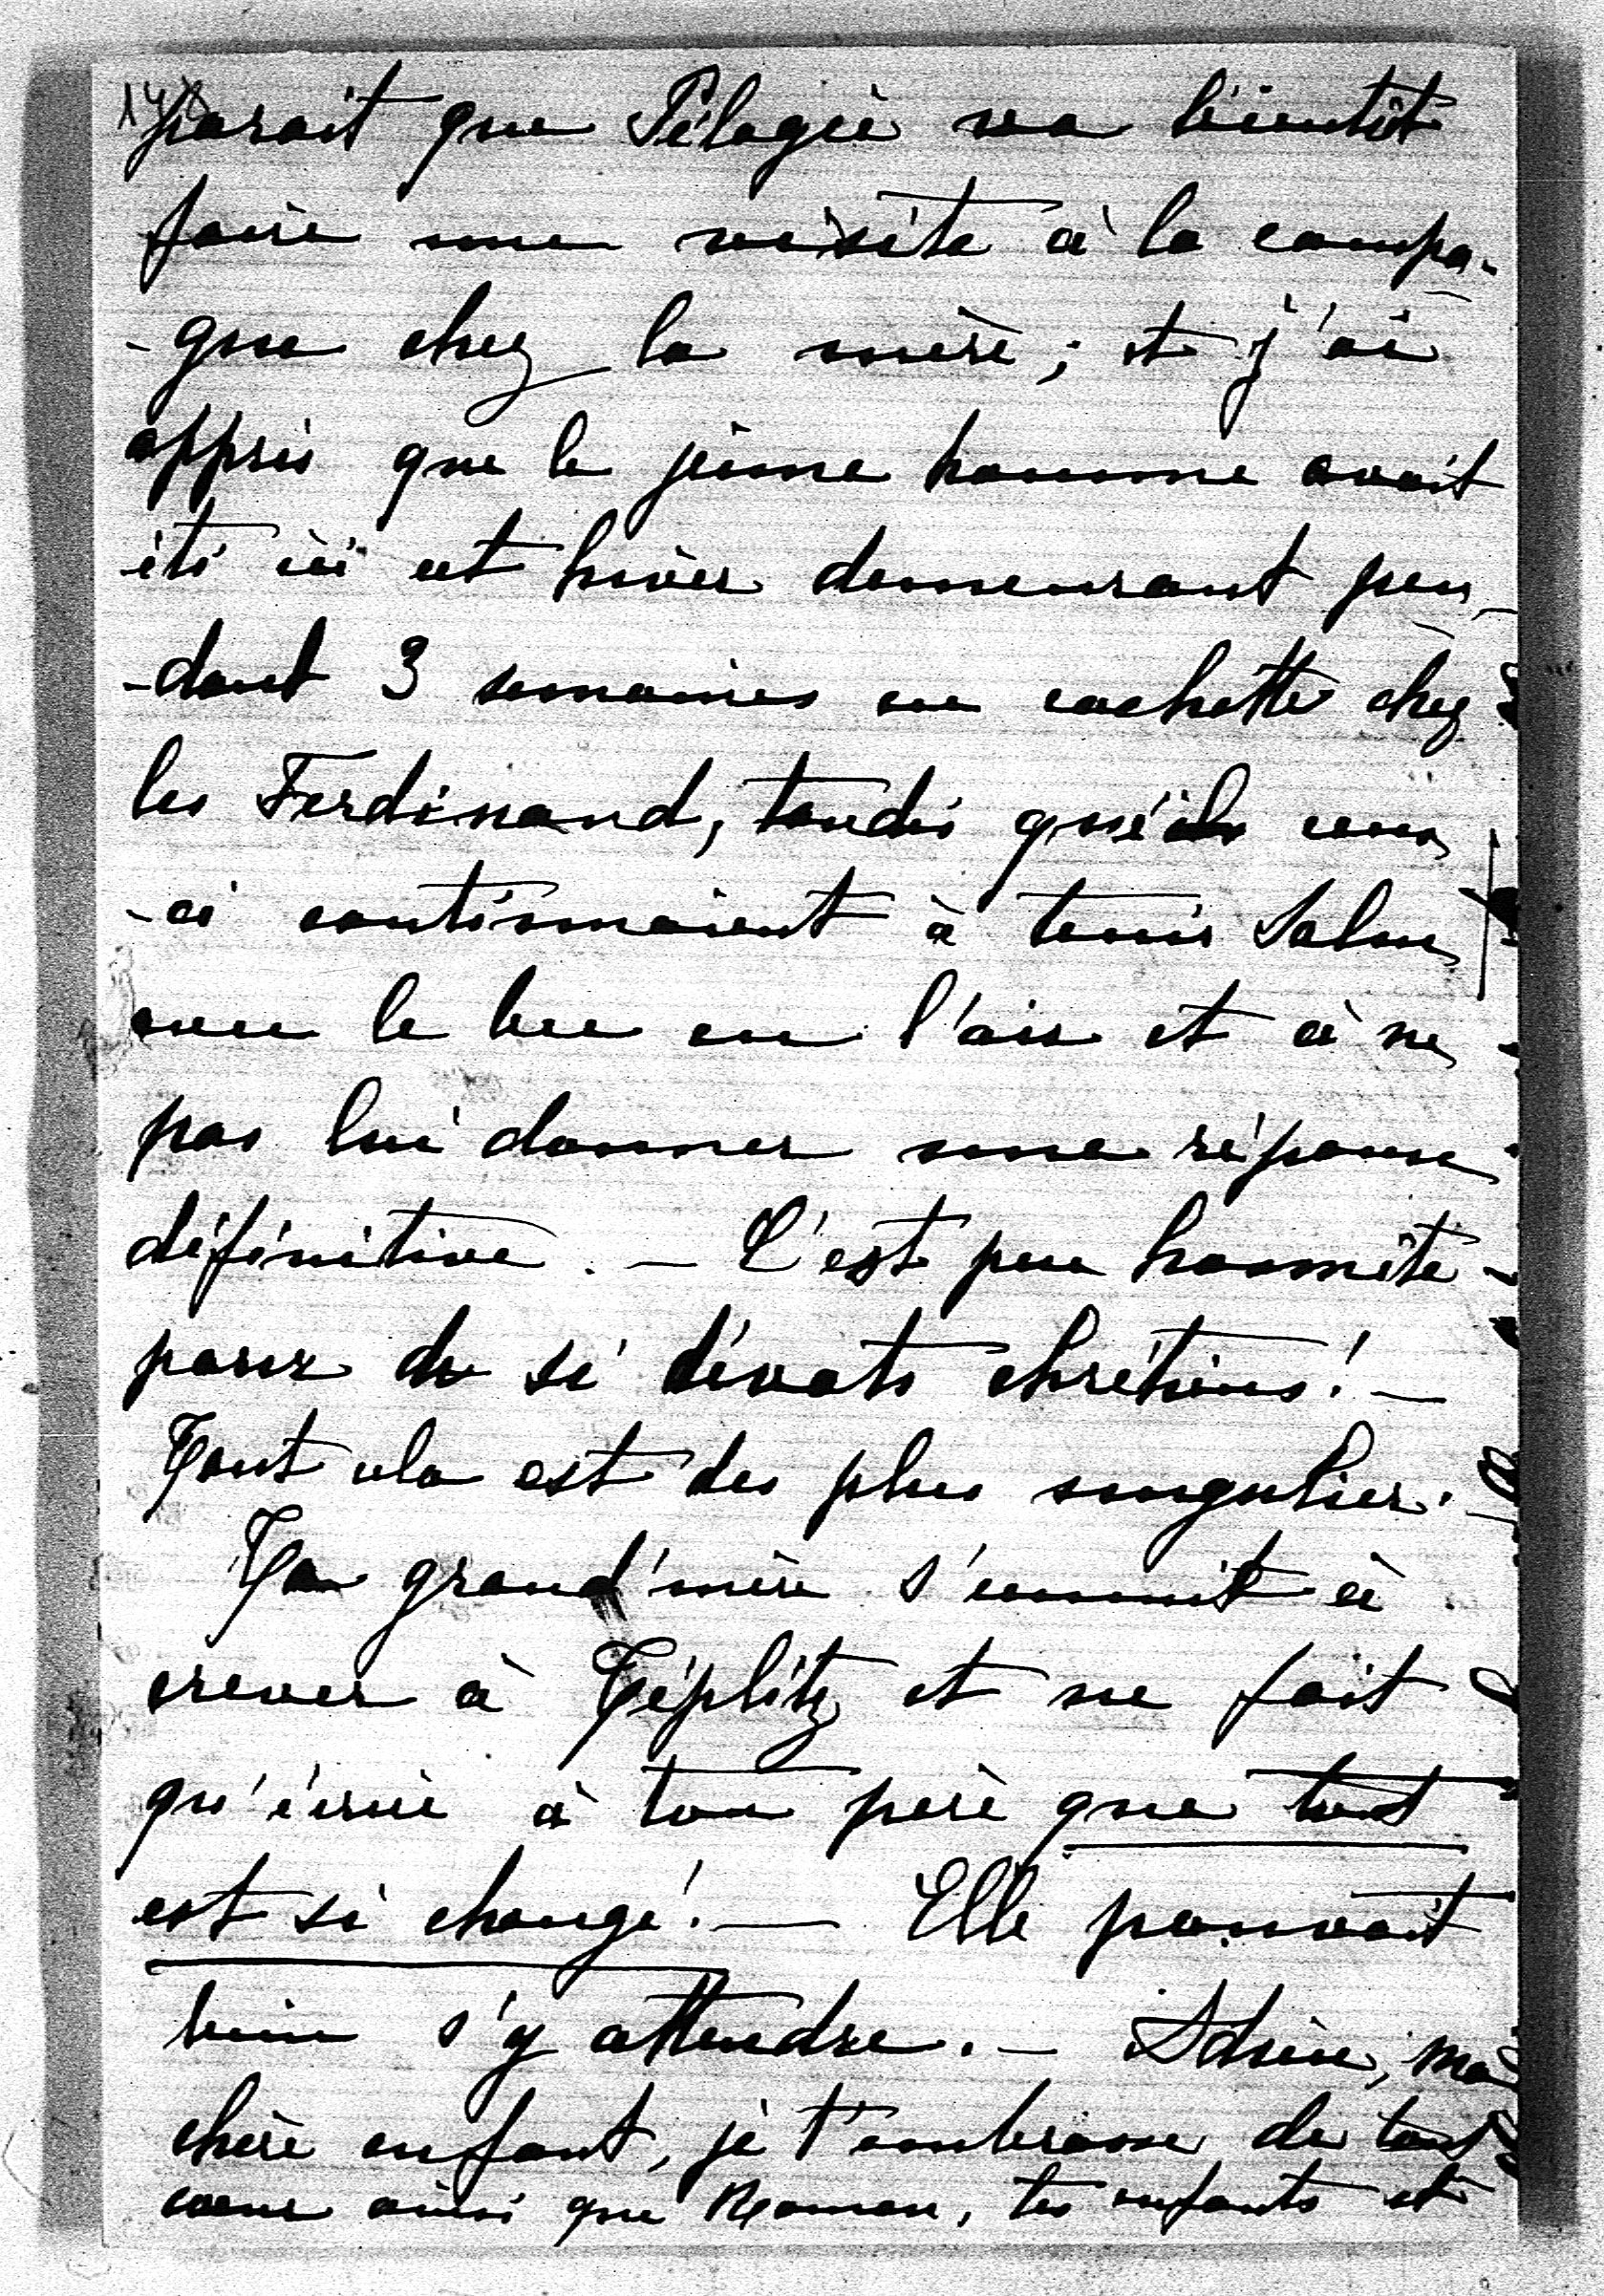 parait que Pélagie va bientôt
faire une visite à la campa-
-gne chez la mère; et j'ai
appris que le jeune homme avait
été ici cet hiver demeurant pen-
-dant 3 semaines en cachette chez
les Ferdinand, tandis que ceux
-ci continuaient à tenir Salm
avec le bec en l'air et à ne
pas lui donner une réponse
définitive. — C'est peu honnête
pour de si dévots chrétiens! —
Tout cela est des plus singulier.
Ta grand'mère s'ennuit à
crever à Téplitz et ne fait
qu'écrire à ton père que tout
est si changé! — Elle pouvait
bien s'y attendre. — Adieu, ma
chère enfant, je t'embrasse de tout
coeur ainsi que Roman, tes enfants et